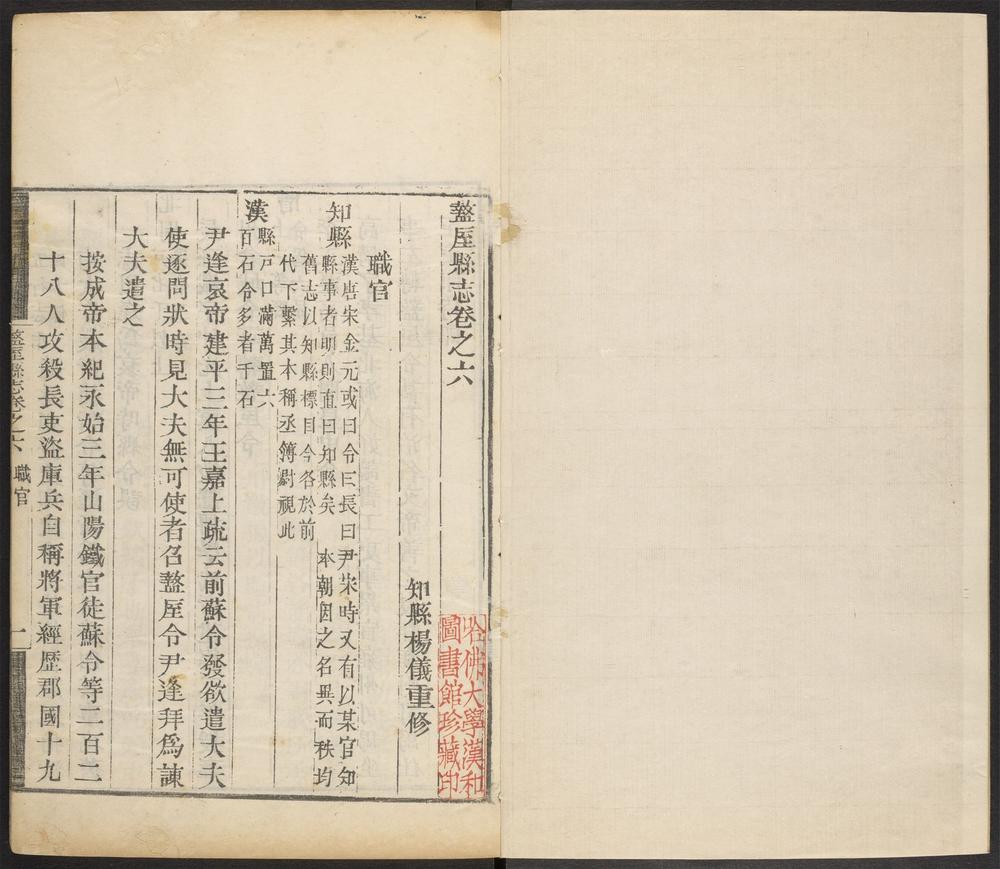 盩厔縣志卷之六
哈佛大學漢和
圖書館珍藏印
知縣楊儀重修
職官
知縣
漢唐宋金元或曰令曰長曰尹宋時又有以某官知
縣事者明則直曰知縣矣 本朝因之名異而秩均
舊志以知縣標目今各於前
代下繫其本稱丞簿尉視此
漢
縣戸口滿萬置六
百石令多者千石
尹逢哀帝建平三年王嘉上疏云前蘇令發欲遣大夫
使逐問狀時見大夫無可使者召盩厔令尹逢拜爲諫
大夫遣之
按成帝本紀永始三年山陽鐵官徒蘇令等二百二
十八人攻殺長吏盜庫兵自稱將軍經歷郡國十九
盩厔縣志卷之六 職官 一